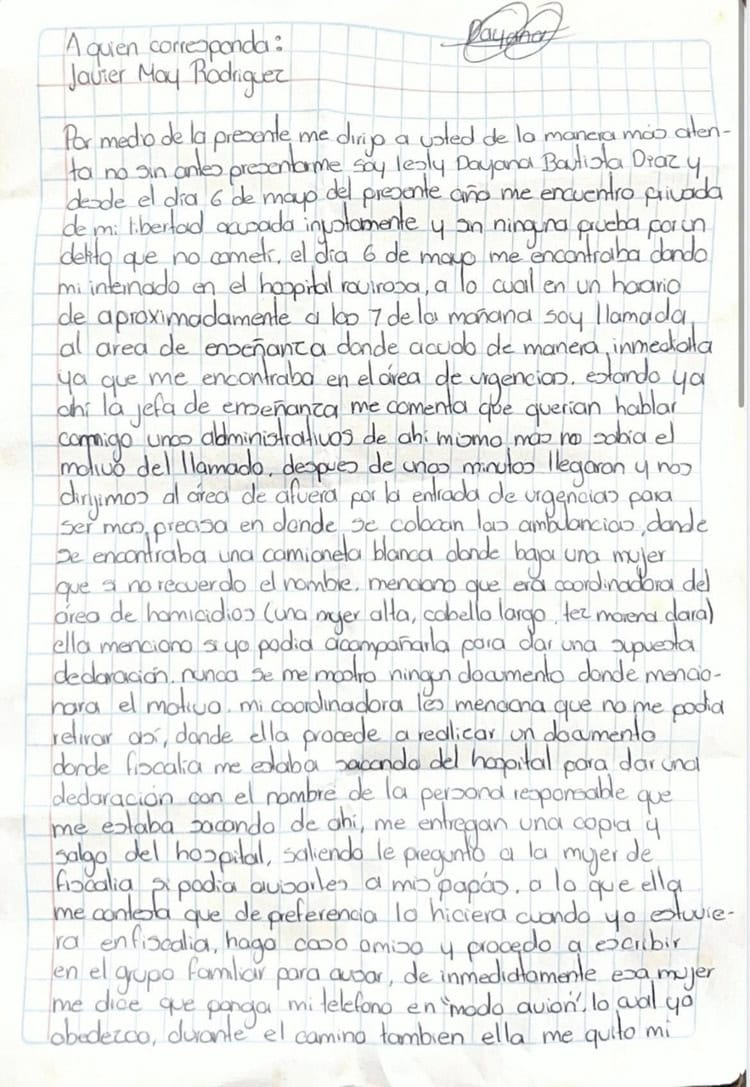 Dayana
A quien corresponda:
Javier May Rodriguez
Por medio de la presente me dirijo a usted de la manera más aten-
ta no sin antes presentarme soy lesly Dayana Bautista Diaz y
desde el día 6 de mayo del presente año me encuentro privada
de mi libertad acusada injustamente y sin ninguna prueba por un
delito que no cometí, el día 6 de mayo me encontraba dando
mi internado en el hospital rovirosa, a lo cual en un horario
de aproximadamente a las 7 de la mañana soy llamada
al area de enseñanza donde acudo de manera inmediata
ya que me encontraba en el área de urgencias. estando ya
ahí la jefa de enseñanza me comenta que querian hablar
conmigo unos administrativos de ahí mismo más no sabia el
motivo del llamado. despues de unos minutos llegaron y nos
dirijimos al área de afuera por la entrada de urgencias para
ser mas precisa en donde se colocan las ambulancias, donde
se encontraba una camioneta blanca donde baja una mujer
que si no recuerdo el nombre. menciono que era coordinadora del
área de homicidios (una mujer alta, cabello largo, tez morena clara)
ella menciono si yo podia acompañarla para dar una supuesta
declaración. nunca se me mostro ningun documento donde mencio-
nara el motivo. mi coordinadora les menciona que no me podia
retirar así, donde ella procede a realicar un documento
donde fiscalia me estaba sacando del hospital para dar una
declaración con el nombre de la persona responsable que
me estaba sacando de ahi, me entregan una copia y
salgo del hospital, saliendo le pregunto a la mujer de
fiscalia si podia avisarles a mis papás. a lo que ella
me contesta que de preferencia lo hiciera cuando yo estuvie-
ra en fiscalia, hago caso omiso y procedo a escribir
en el grupo familiar para avisar, de inmediatamente esa mujer
me dice que ponga mi telefono en "modo avion", lo cual yo
obedezco, durante el camino tambien ella me quito mi